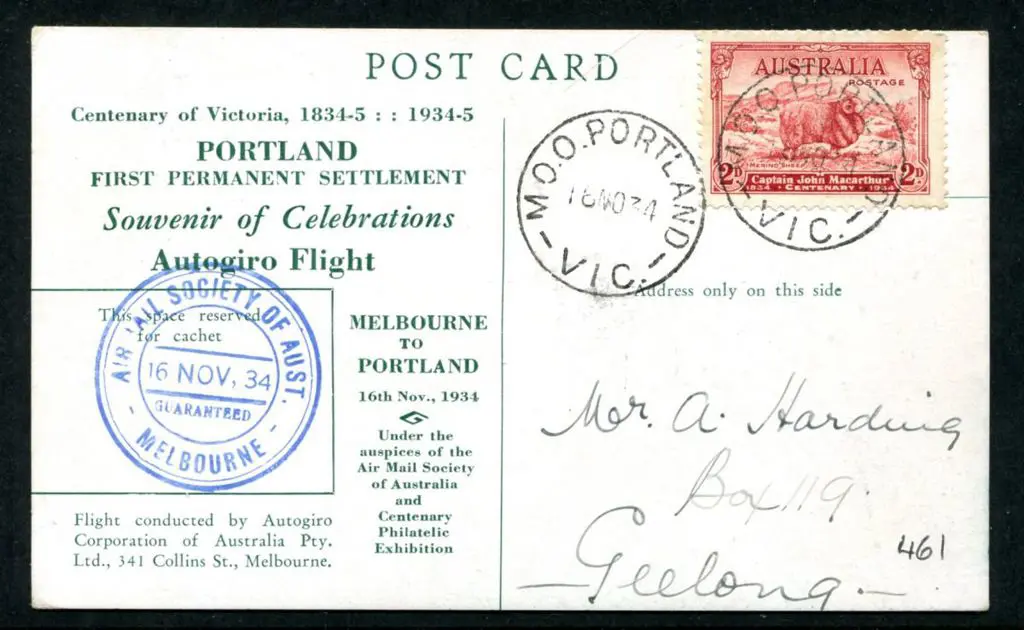 POST CARD
Centenary of Victoria, 1834-5 : : 1934-5
PORTLAND
FIRST PERMANENT SETTLEMENT
Souvenir of Celebrations
Autogiro Flight
This space reserved
for cachet
AIR MAIL SOCIETY OF AUST.
16 NOV, 34
GUARANTEED
- MELBOURNE -
MELBOURNE
TO
PORTLAND
16th Nov., 1934
Under the
auspices of the
Air Mail Society
of Australia
and
Centenary
Philatelic
Exhibition
Flight conducted by Autogiro
Corporation of Australia Pty.
Ltd., 341 Collins St., Melbourne.
M.O.O. PORTLAND
16 NO 34
- VIC. -
AUSTRALIA
POSTAGE
MERINO SHEEP
2D Captain John Macarthur 2D
1834 • CENTENARY • 1934
M.O.O. PORTLAND
- VIC. -
Address only on this side
Mr. A. Harding
Box 119.
- Geelong. -
461